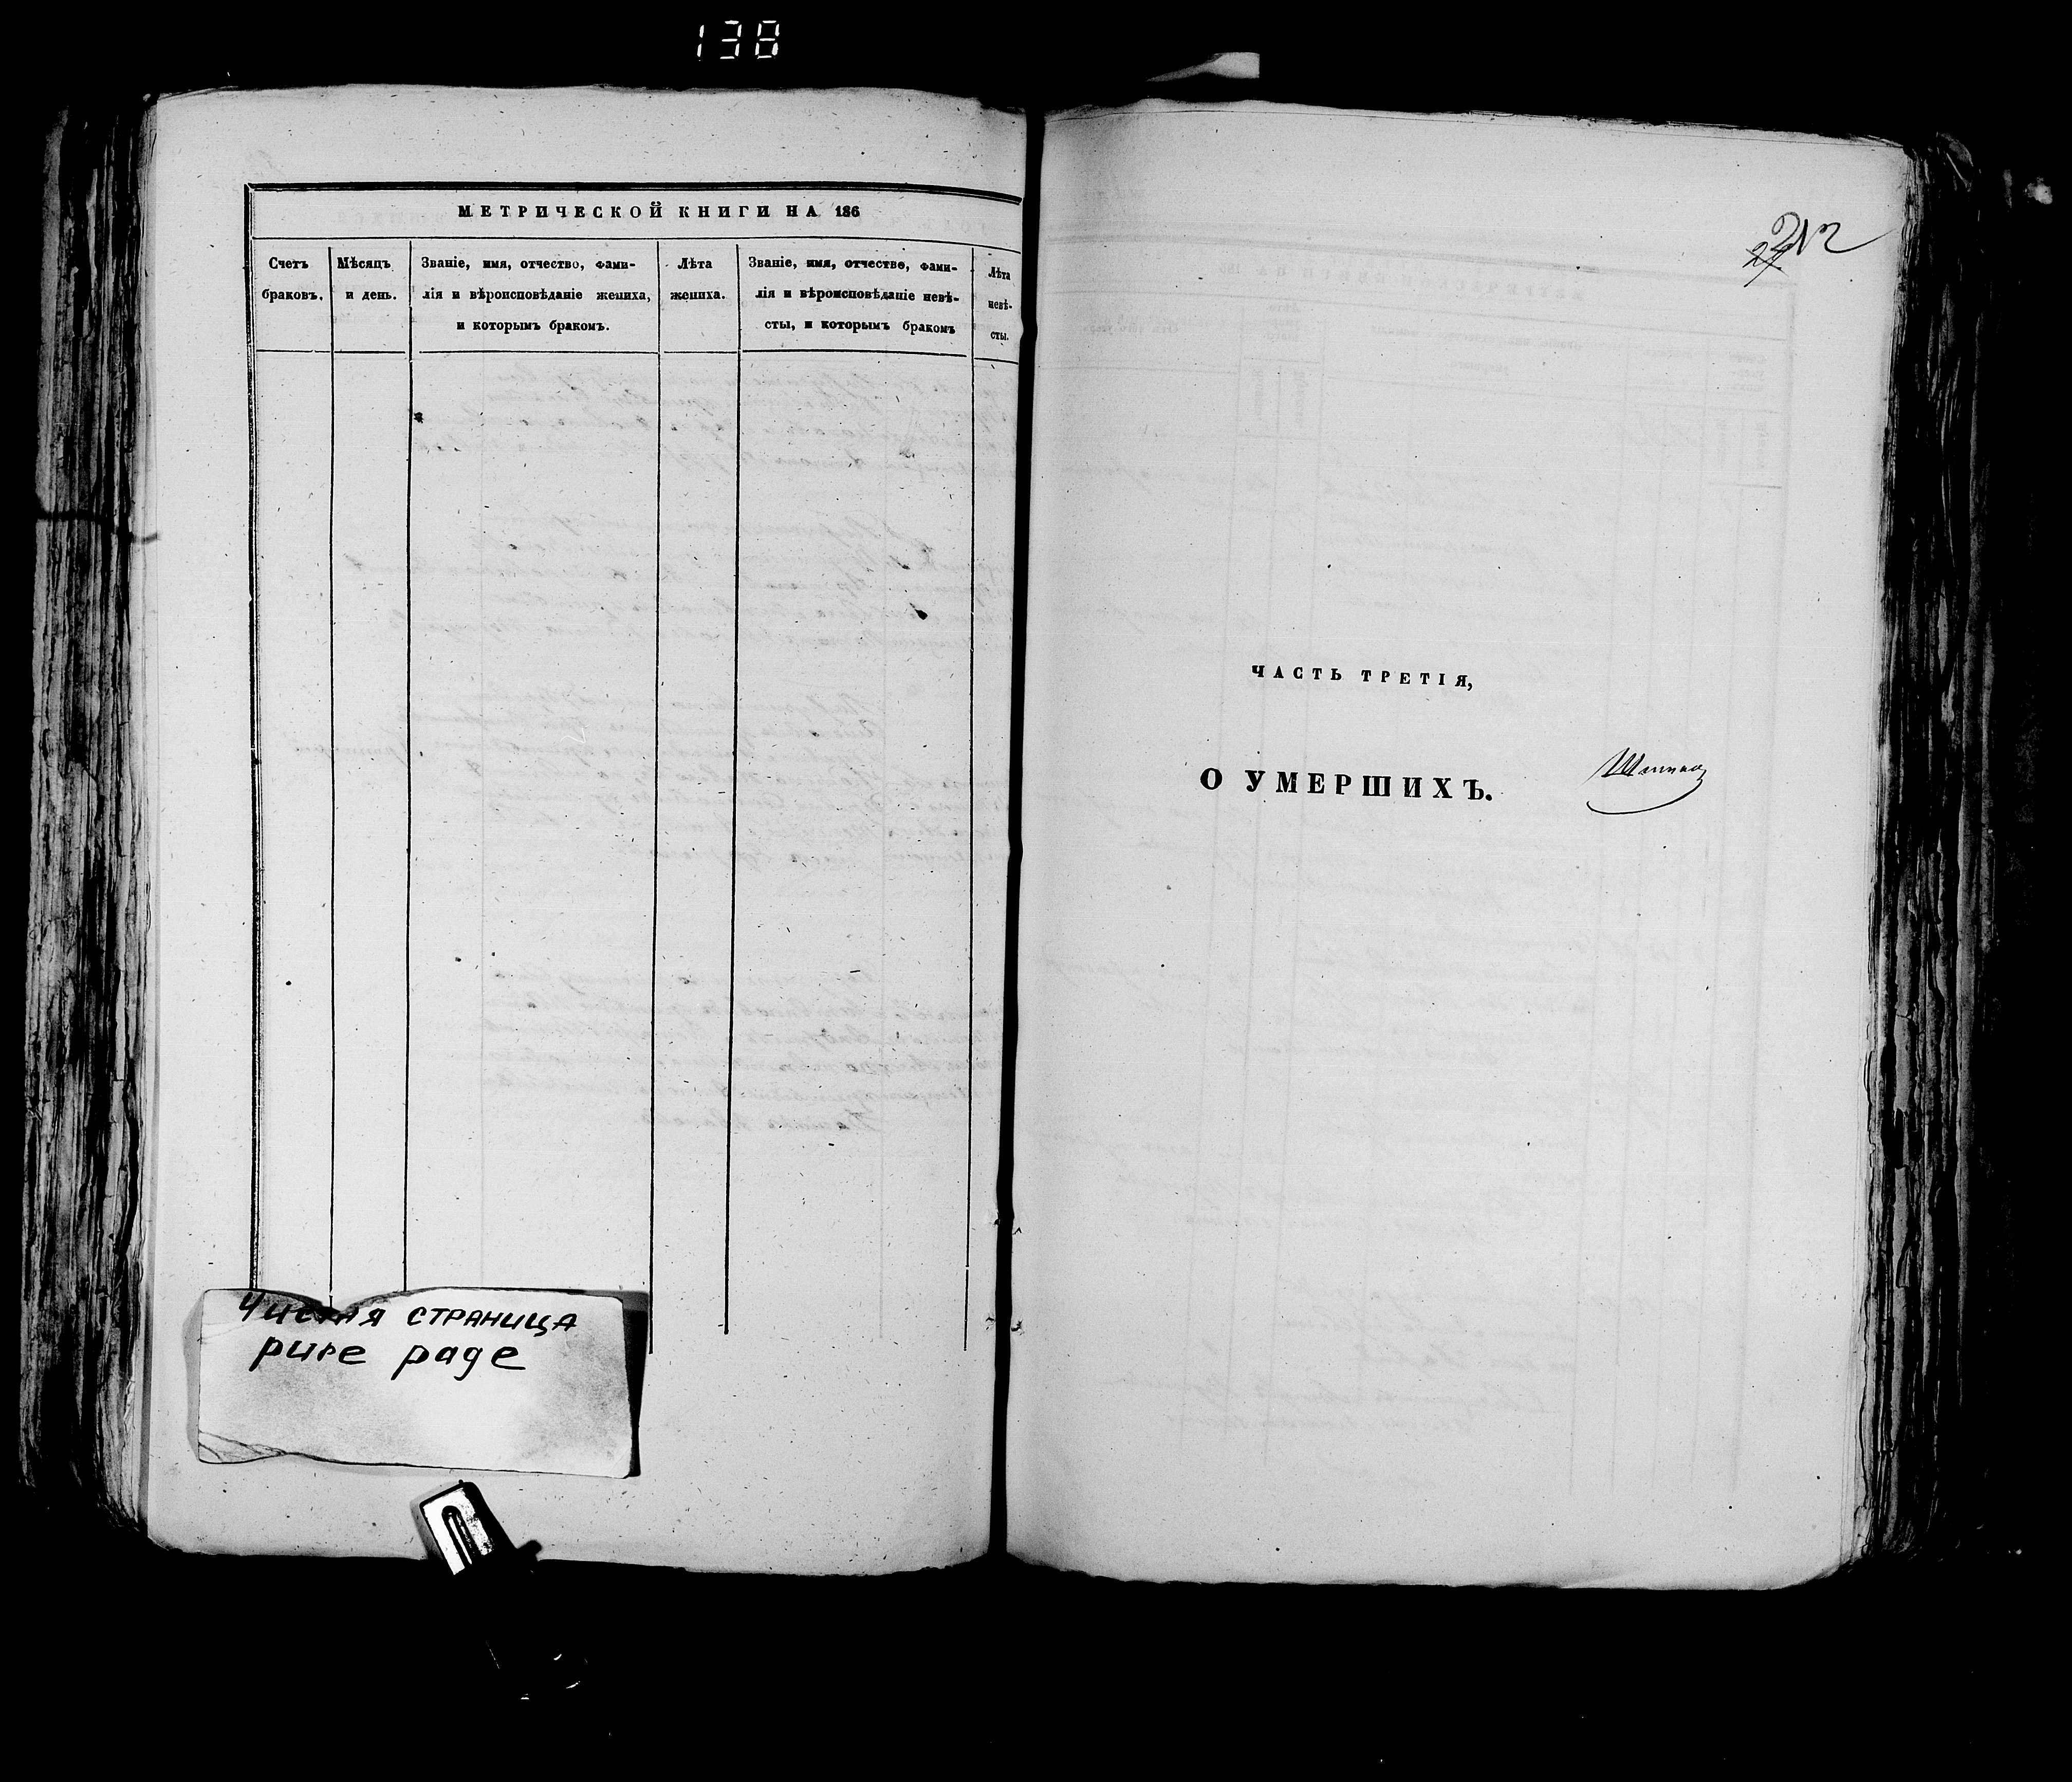 138
МЕТРИЧЕСКОЙ КНИГИ НА 186
Счетъ
браковъ.
Мѣсяцъ
и день.
Званіе, имя, отчество, фами-
лія и вѣроисповѣданіе жениха,
и которымъ бракомъ.
Лѣта
жениха.
Званіе, имя, отчество, фами-
лія и вѣроисповѣданіе невѣ-
сты, и которымъ бракомъ
Лѣта
невѣ-
сты.
Чистая страница
pure page
212
ЧАСТЬ ТРЕТІЯ,
О УМЕРШИХЪ.